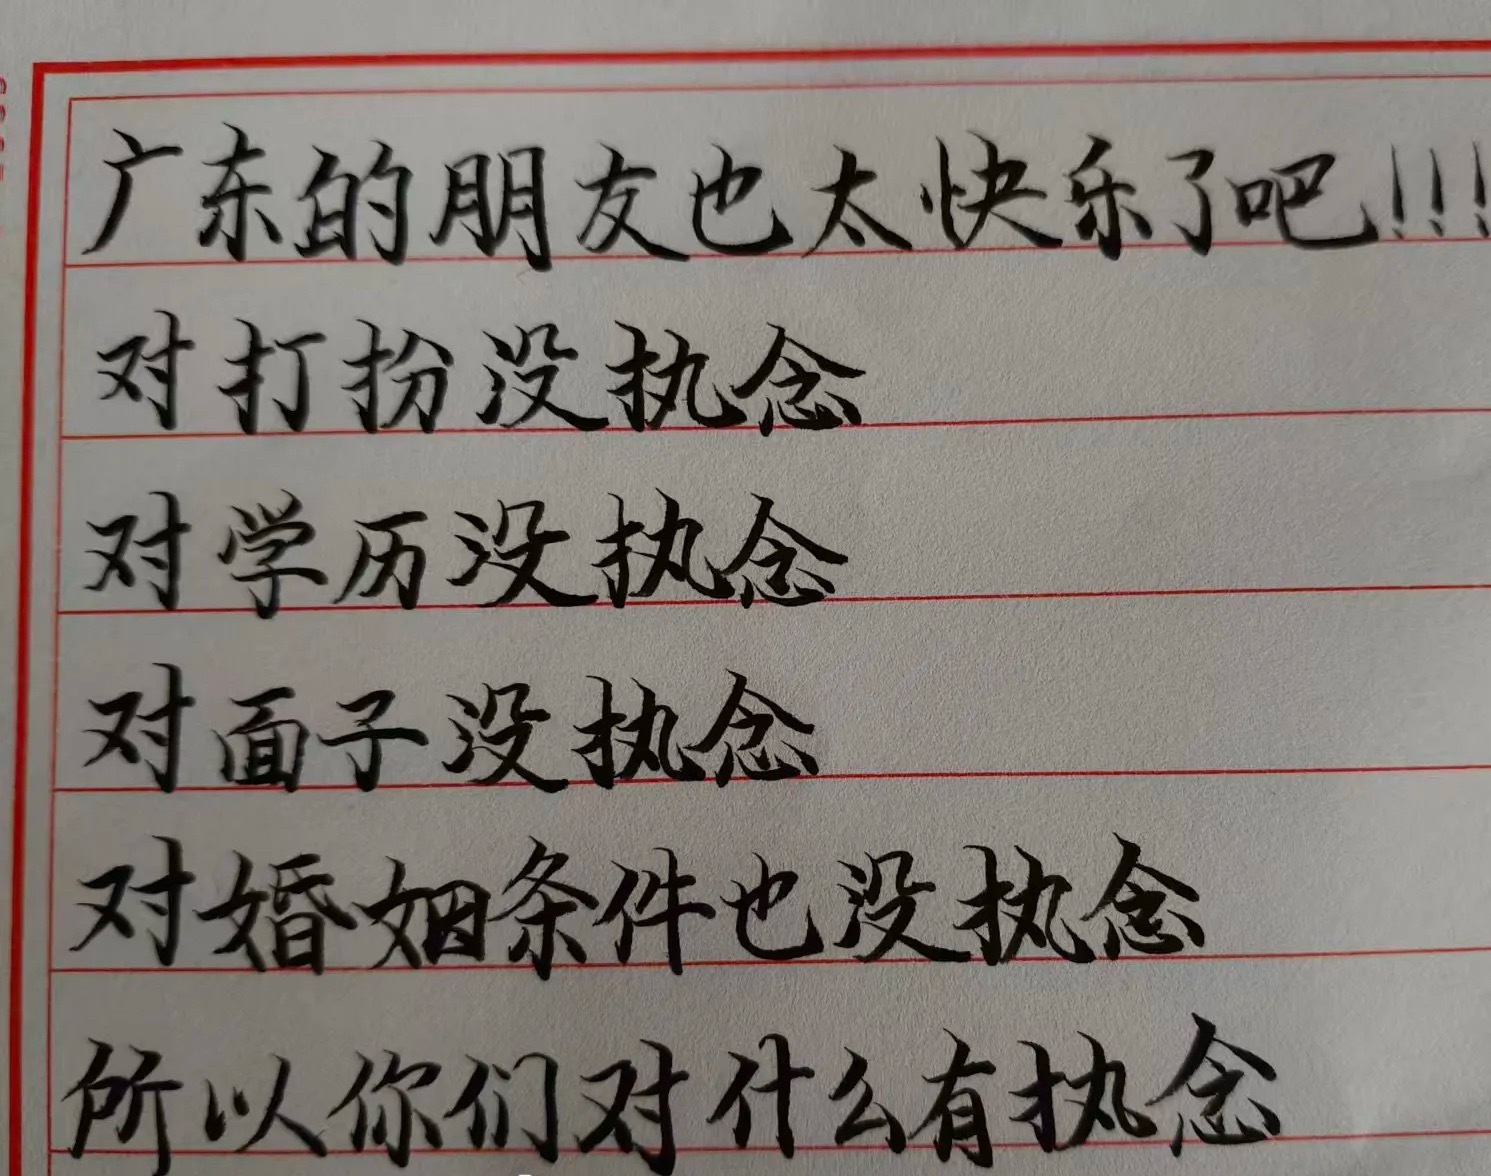 广东的朋友也太快乐了吧!!!
对打扮没执念
对学历没执念
对面子没执念
对婚姻条件也没执念
所以你们对什么有执念